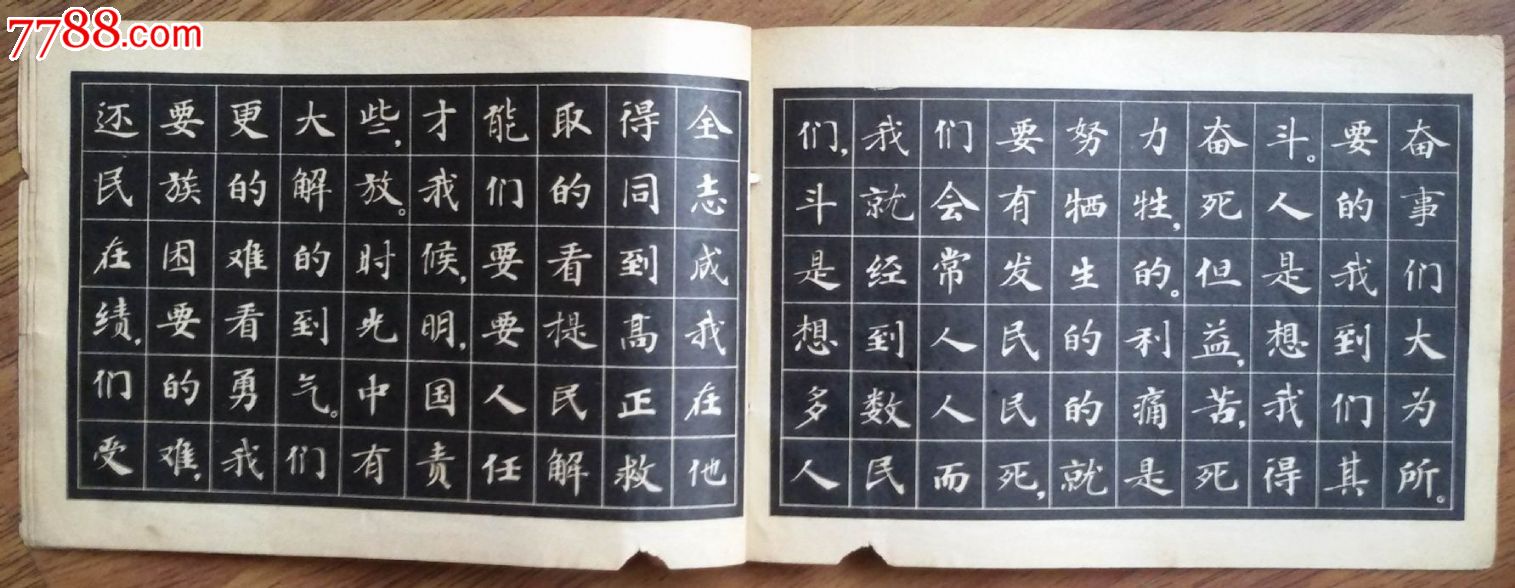 7788.com
还要更大些，才能取得全
民族的解放。我们的同志
在困难的时候，要看到成
绩，要看到光明，要提高我
们的勇气。中国人民正在
受难，我们有责任解救他
们，我们要努力奋斗。要奋
斗就会有牺牲，死人的事
是经常发生的。但是我们
想到人民的利益，想到大
多数人民的痛苦，我们为
人民而死，就是死得其所。